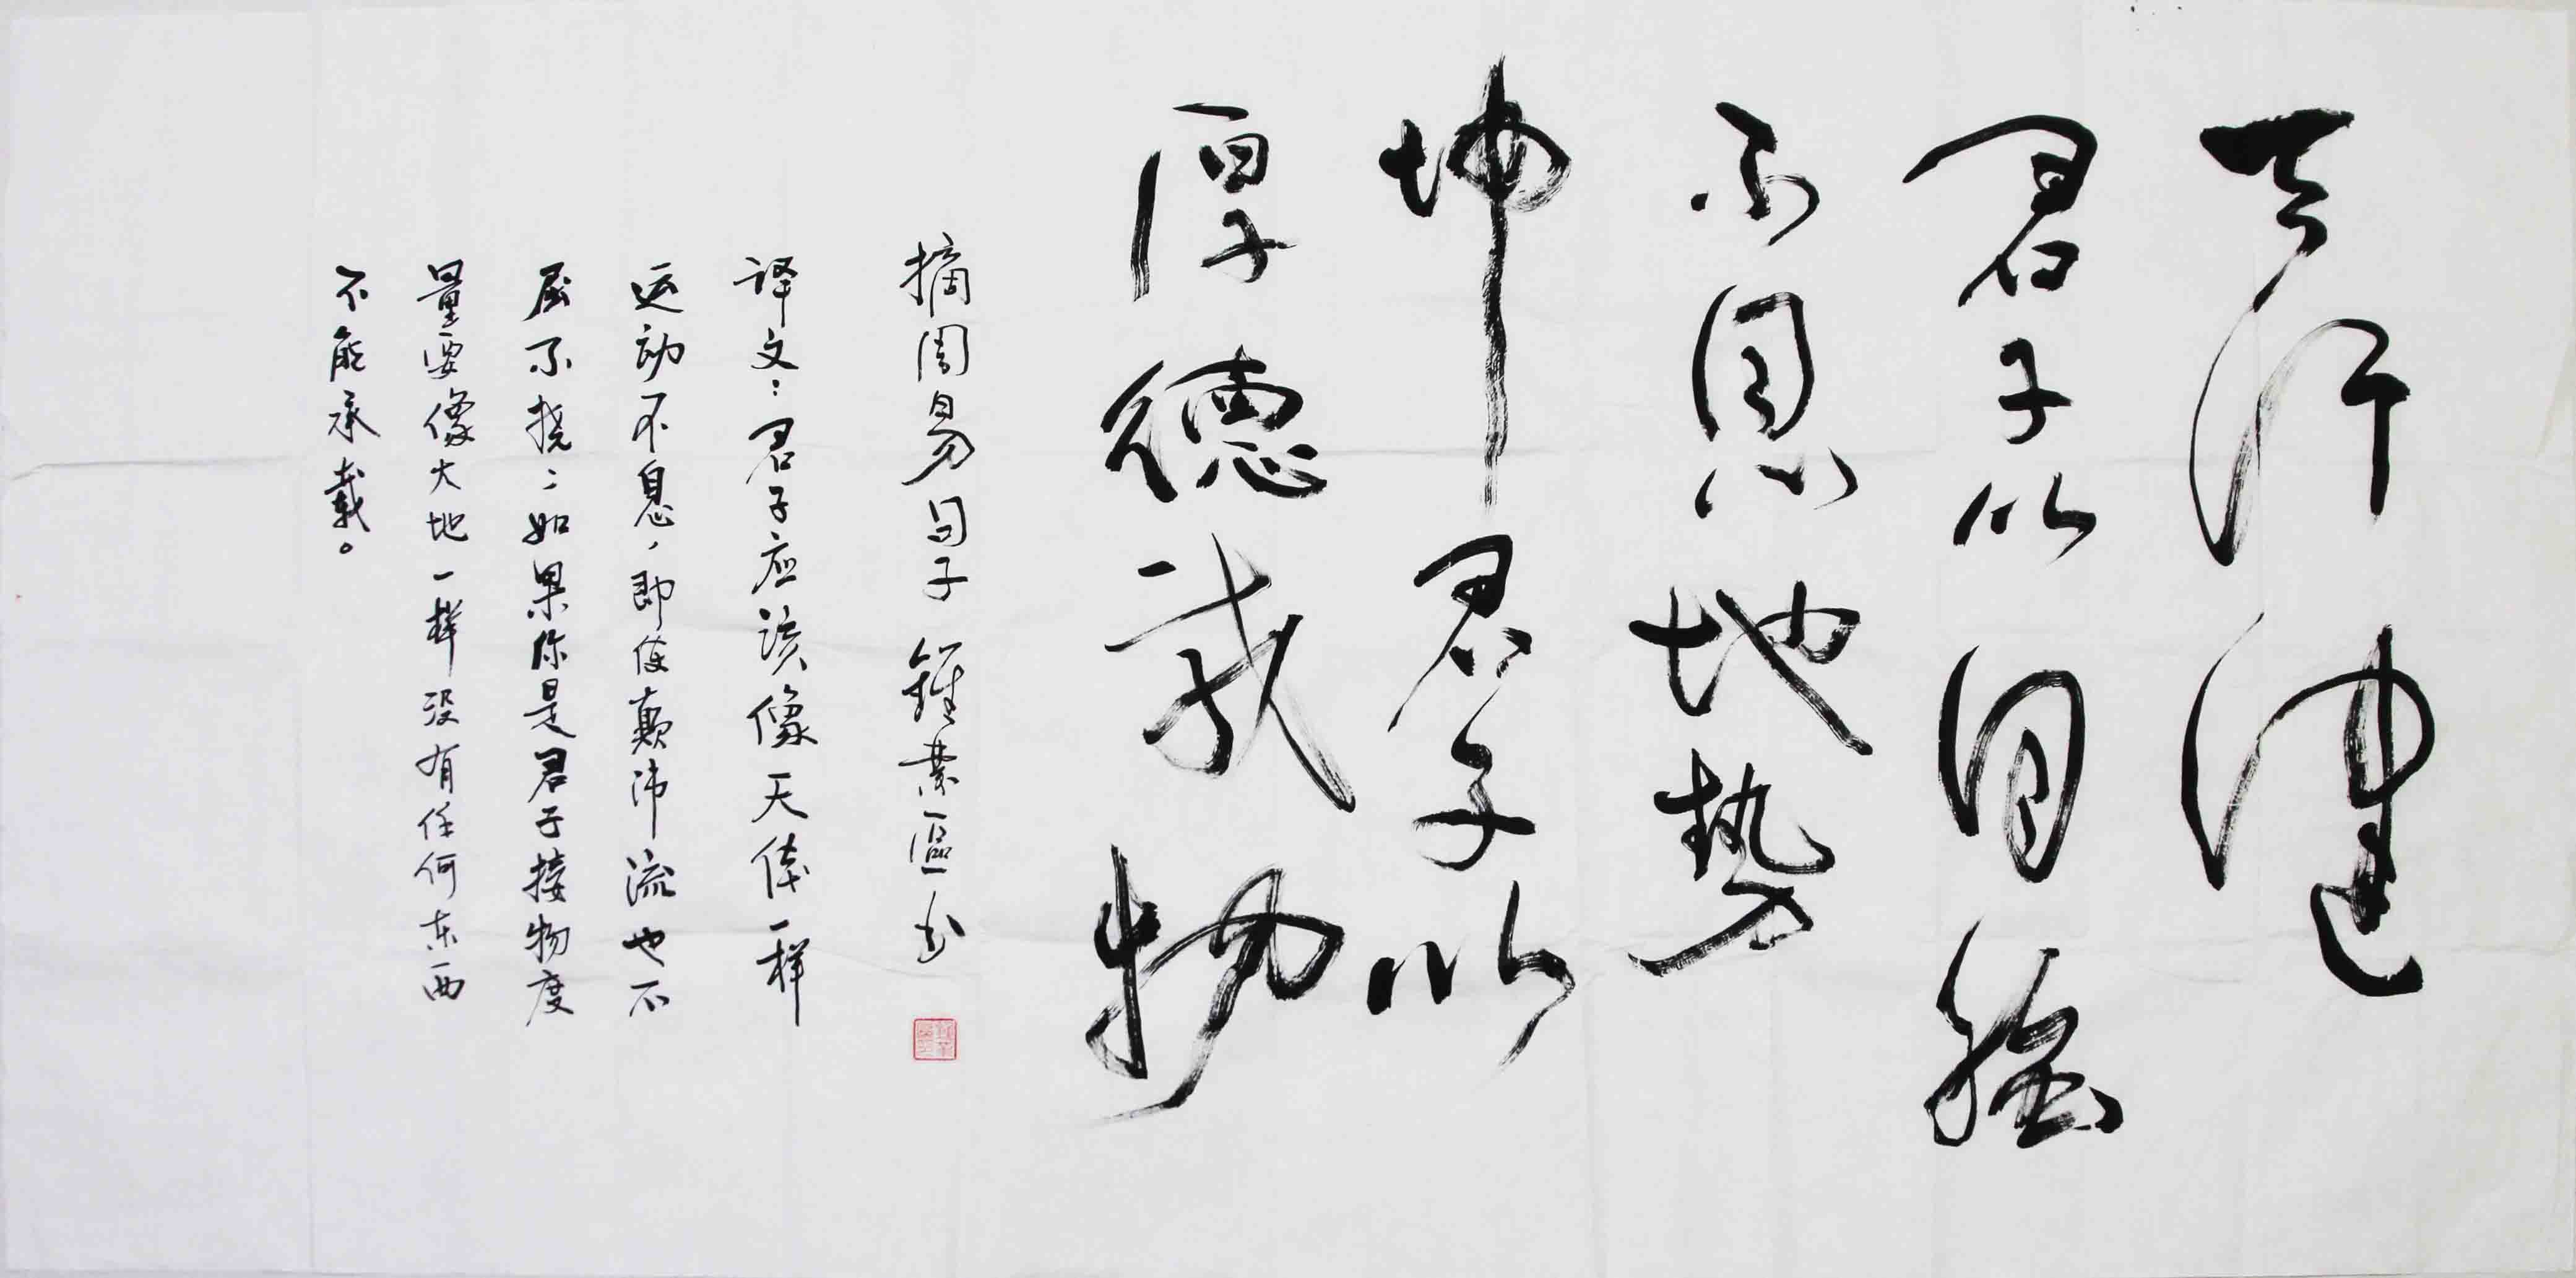 天行健
君子以自強
不息地势
坤君子以
厚德载物
摘周易句子 鍾業區书
译文:君子应该像天体一样
运动不息,即使颠沛流也不
屈不挠;如果你是君子接物度
量要像大地一样没有任何东西
不能承载。